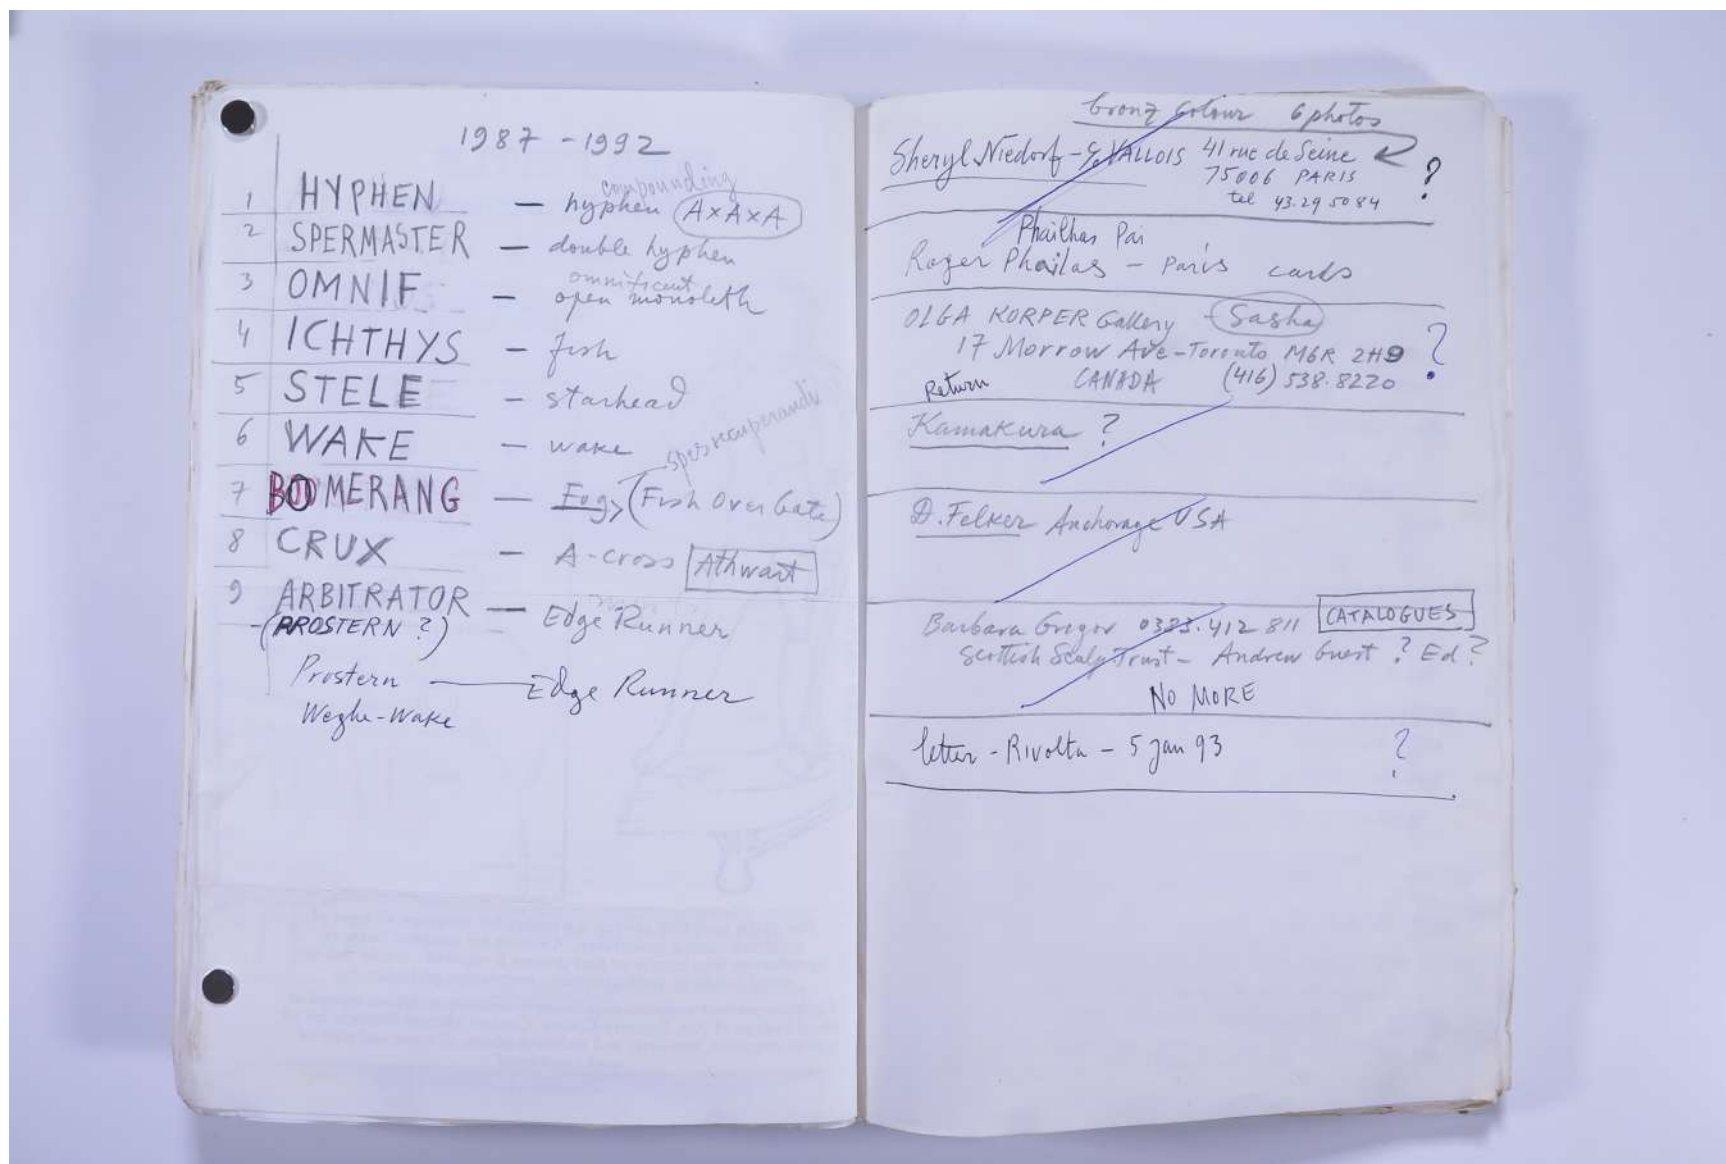 1987 - 1992
1 HYPHEN — hyphen compounding AxAxA
2 SPERMASTER — double hyphen
3 OMNIF — omnificent open monoleth
4 ICHTHYS — fish
5 STELE — starhead
6 WAKE — wake
spes recuperandi
7 BOOMERANG — Fog (Fish Over Gate)
8 CRUX — A-cross Athwart
9 ARBITRATOR — Edge Runner
(PROSTERN ?)
Prostern — Edge Runner
-Wake
bronz Colour 6 photos
Sheryl Niedorf - G. VALLOIS 41 rue de Seine ?
75006 PARIS
tel 43.29 50 84
Phailhas Pai
Roger Phailas - Paris cards
OLGA KORPER Gallery - Sasha ?
17 Morrow Ave - Toronto M6R 2H9
Return CANADA (416) 538.8220
Kamakura ?
D. Felker Anchorage USA
Barbara Gregor 0383.412 811 CATALOGUES
Scottish Sculp Trust - Andrew Guest ? Ed ?
NO MORE
letter - Rivolta - 5 Jan 93 ?